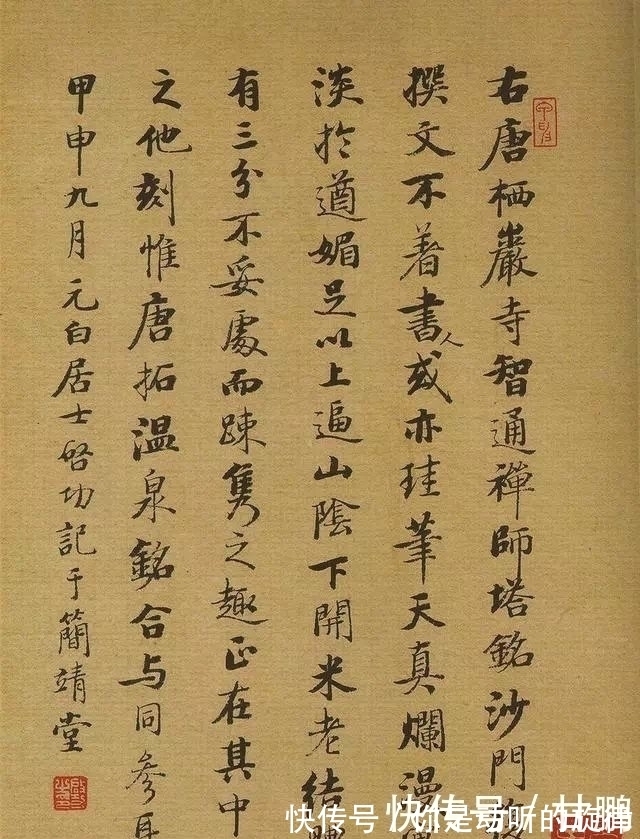 右唐栖巖寺智通禪師塔銘沙門
撰文不著書人或亦珪筆天真爛漫
淡於遒媚足以上逼山陰下開米老結
有三分不妥處而踈雋之趣正在其中
之他刻惟唐拓温泉銘合与同參
甲申九月元白居士啓功記于簡靖堂
快传号 / 甘鹏
快传号 / 你是动听的旋律